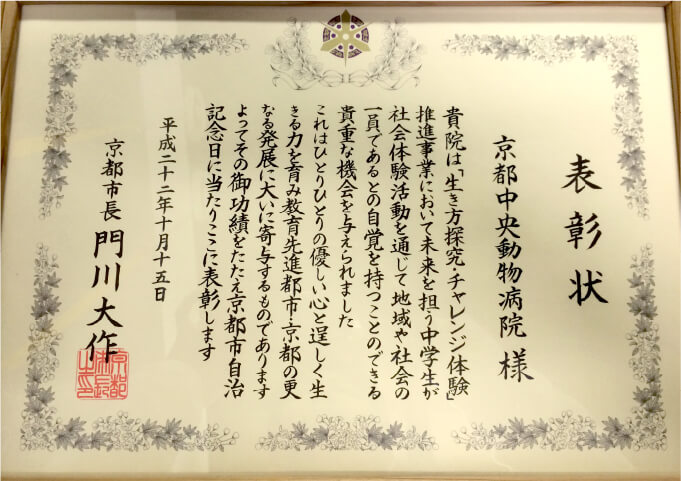 表彰状
京都中央動物病院 様
貴院は「生き方探究・チャレンジ体験」
推進事業において未来を担う中学生が
社会体験活動を通じて地域や社会の
一員であるとの自覚を持つことのできる
貴重な機会を与えられました
これはひとりひとりの優しい心と逞しく生
きる力を育み教育先進都市・京都の更
なる発展に大いに寄与するものであります
よってその御功績をたたえ京都市自治
記念日に当たりここに表彰します
平成二十二年十月十五日
京都市長 門川大作
京都市長之印